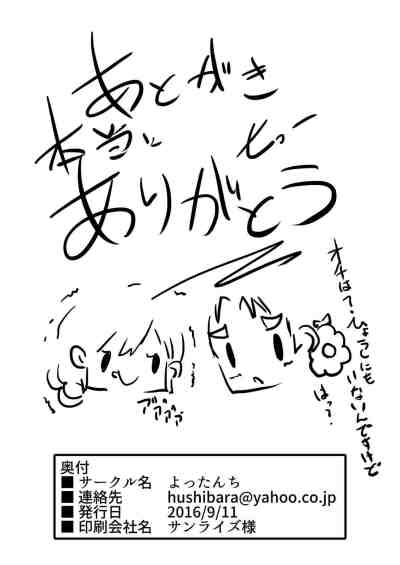 あとがき
本当に
ありがとう
オチは?.ひょうこにも
いないんですけど
はっ?.
ブブブブ
奥付
■ サークル名 よったんち
■ 連絡先 hushibara@yahoo.co.jp
■ 発行日 2016/9/11
■ 印刷会社名 サンライズ様